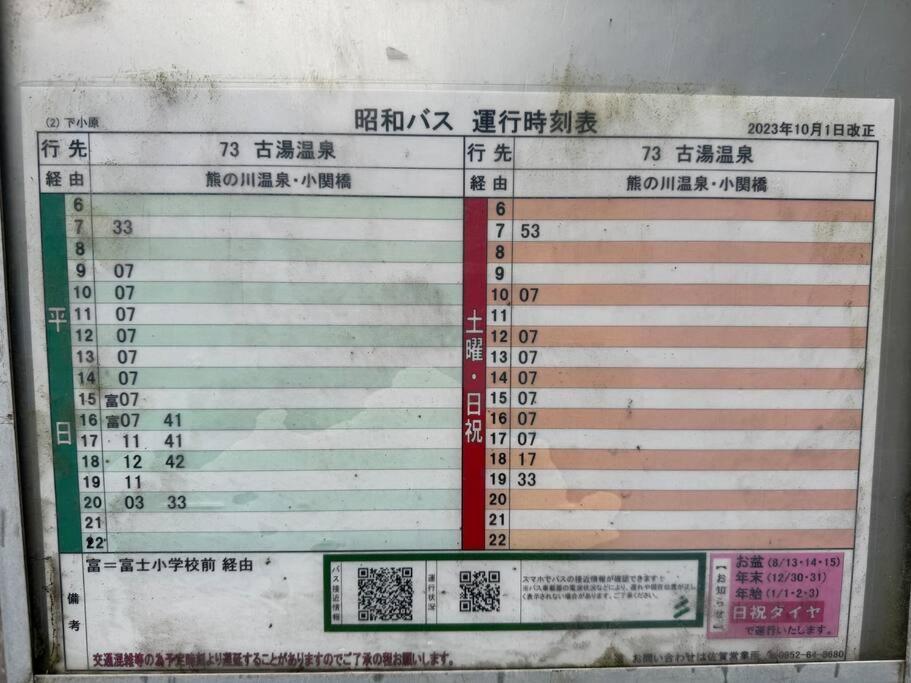 (2) 下小原
昭和バス 運行時刻表
2023年10月1日改正
行先 73 古湯温泉
経由 熊の川温泉・小関橋
平日
6
7 33
8
9 07
10 07
11 07
12 07
13 07
14 07
15 富07
16 富07 41
17 11 41
18 12 42
19 11
20 03 33
21
22
行先 73 古湯温泉
経由 熊の川温泉・小関橋
土曜・日祝
6
7 53
8
9
10 07
11
12 07
13 07
14 07
15 07
16 07
17 07
18 17
19 33
20
21
22
備考
富=富士小学校前 経由
バス接近情報
運行状況
スマホでバスの接近情報が確認できます!
※バス車載器の電波状況などにより、遅れや現在位置が正し
く表示されない場合があります。ご了承ください。
【お知らせ】
お盆(8/13・14・15)
年末(12/30・31)
年始(1/1・2・3)
日祝ダイヤ
で運行いたします。
交通混雑等の為予定時刻より遅延することがありますのでご了承の程お願いします。
お問い合わせは佐賀営業所 0952-64-8680